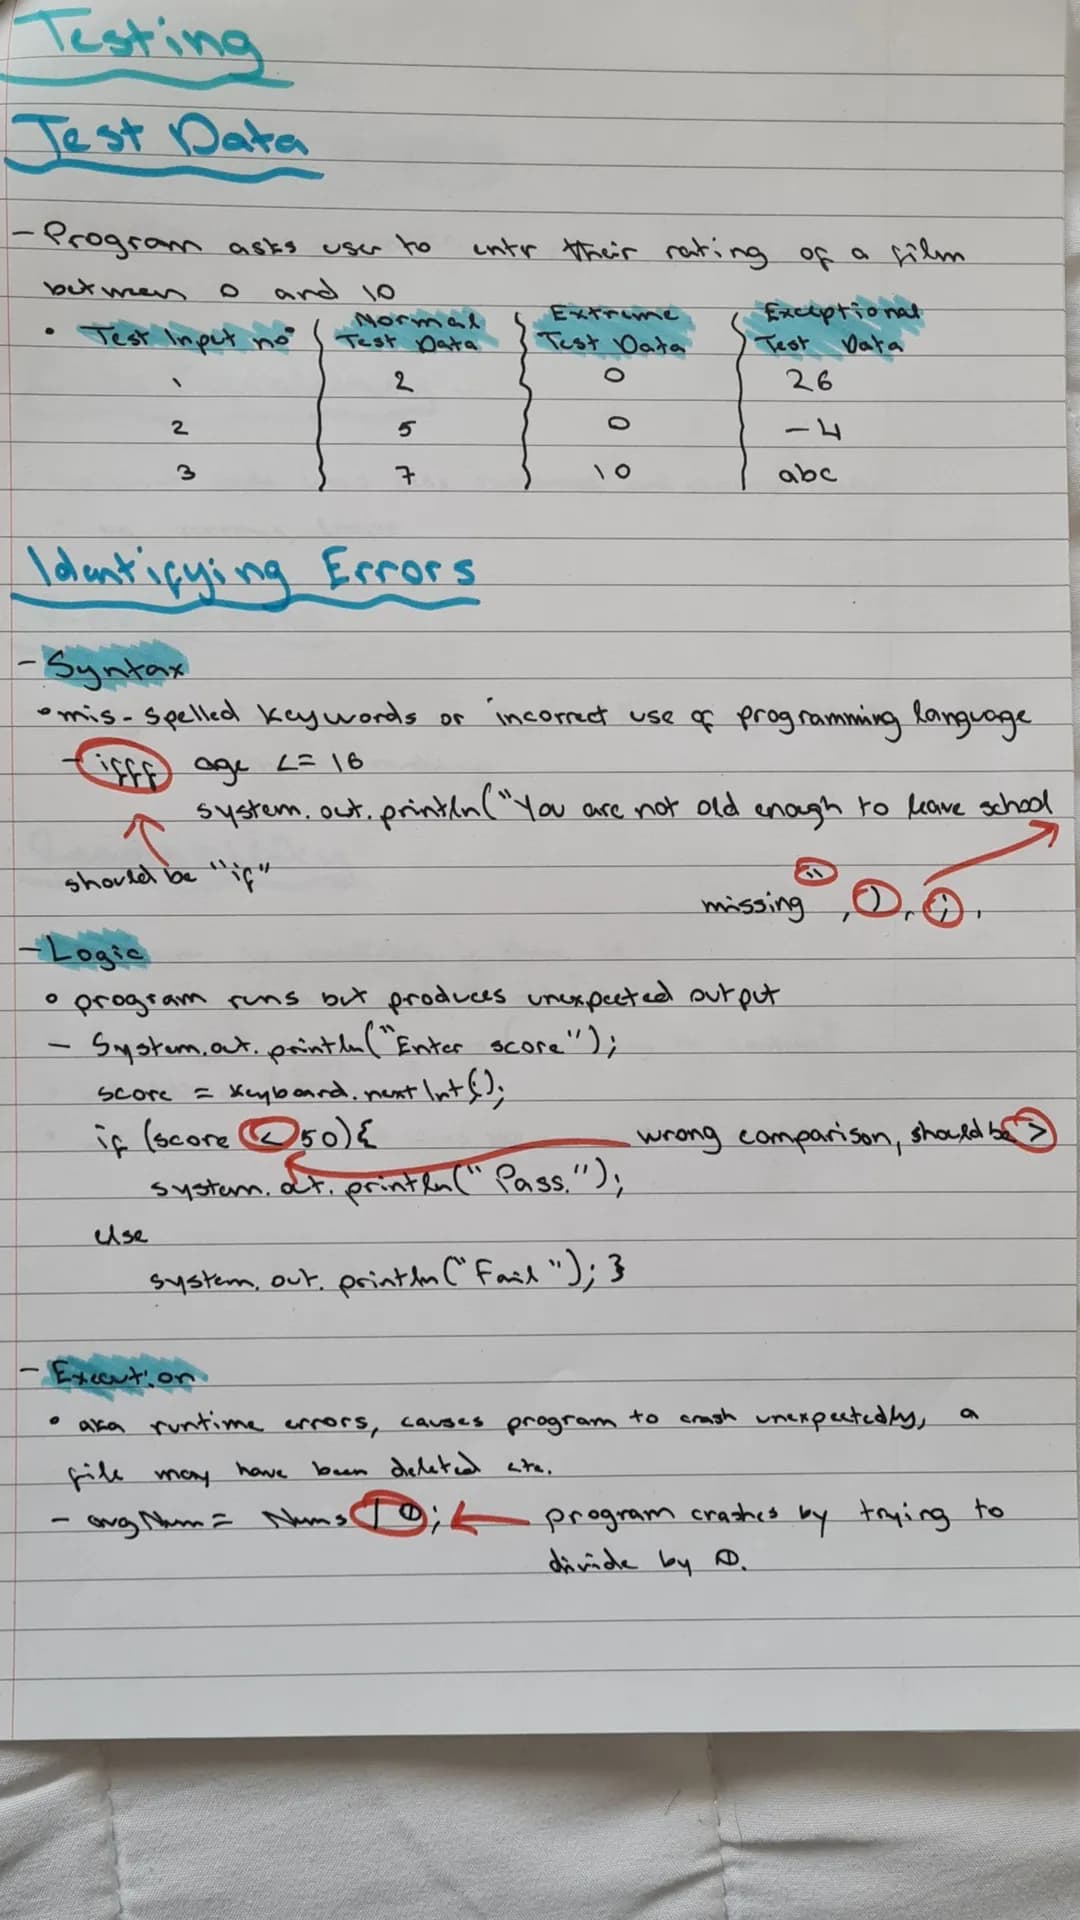 Testing
Test Data
- Program asks user to entr their rating of a film
between 0 and 10
• Test Input no° Normal Test Data Extreme Test Data Exceptional Test Data
1 2 0 26
2 5 0 -4
3 7 10 abc
Identifying Errors
- Syntax
• mis-spelled keywords or incorrect use of programming language
- ifff age <= 16
system.out.println("You are not old enough to leave school
should be "if"
missing ", ), ;.
- Logic
• program runs but produces unexpected output
- System.out.println("Enter score");
score = keyboard.nextInt();
if (score < 50){ wrong comparison, should be >
system.out.println("Pass.");
else
system.out.println("Fail"); }
- Execution
• aka runtime errors, causes program to crash unexpectedly, a
file may have been deleted etc.
- avgNum = Nums / 0; program crashes by trying to
divide by 0.